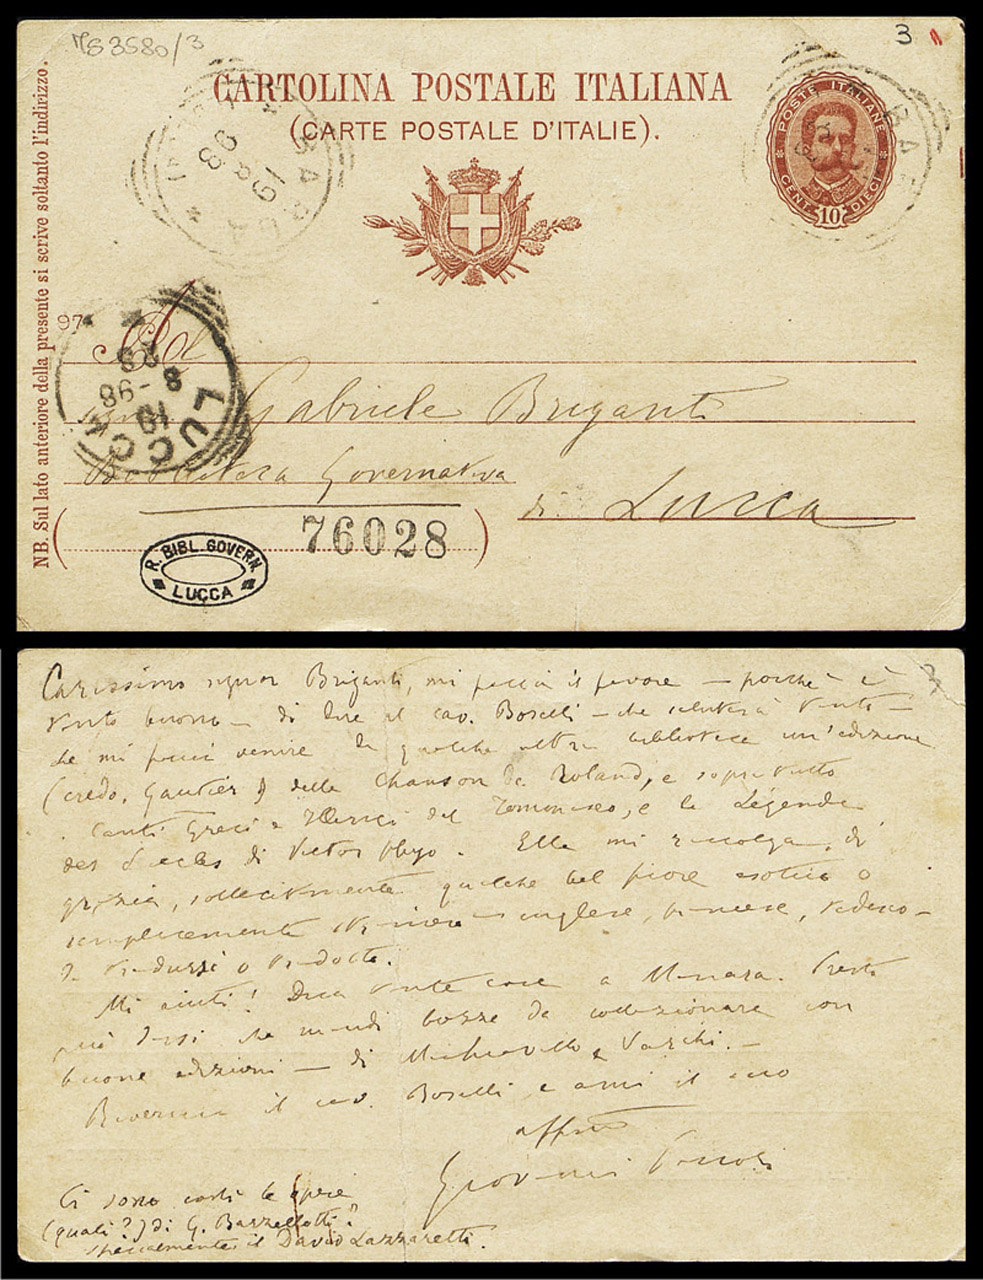 MS 3580/3
3
CARTOLINA POSTALE ITALIANA
(CARTE POSTALE D'ITALIE).
POSTE ITALIANE
CENT. 10 DIECI
BARGA
98
BAR
NB. Sul lato anteriore della presente si scrive soltanto l'indirizzo.
97
LUCCA
8 - 98
Al
Gabriele Briganti
Biblioteca Governativa
di Lucca
76028
R. BIBL. GOVERN.
LUCCA
Carissimo signor Briganti, mi faccia il favore – poichè è
tanto buono – di dire al cav. Boselli – che saluterà tanto –
che mi faccia venire da qualche altra biblioteca un'edizione
(credo, Gautier) della Chanson de Roland, e sopratutto
i Canti Greci e Illirici del Tommaseo, e la Légende
des Siècles di Victor Hugo. Ella mi raccolga, di
grazia, sollecitamente qualche bel fiore esotico o
semplicemente straniero – inglese, francese, tedesco –
da tradursi o tradotto.
Mi aiuti! Dica tante cose a Manara. Presto
può darsi che mandi bozze da collazionare con
buone edizioni – di Machiavelli e Varchi. –
Riverisca il cav. Boselli e ami il suo
affmo
Giovanni Pascoli
Ci sono costì le opere
(quali?) di G. Barzellotti?
specialmente il David Lazzaretti.